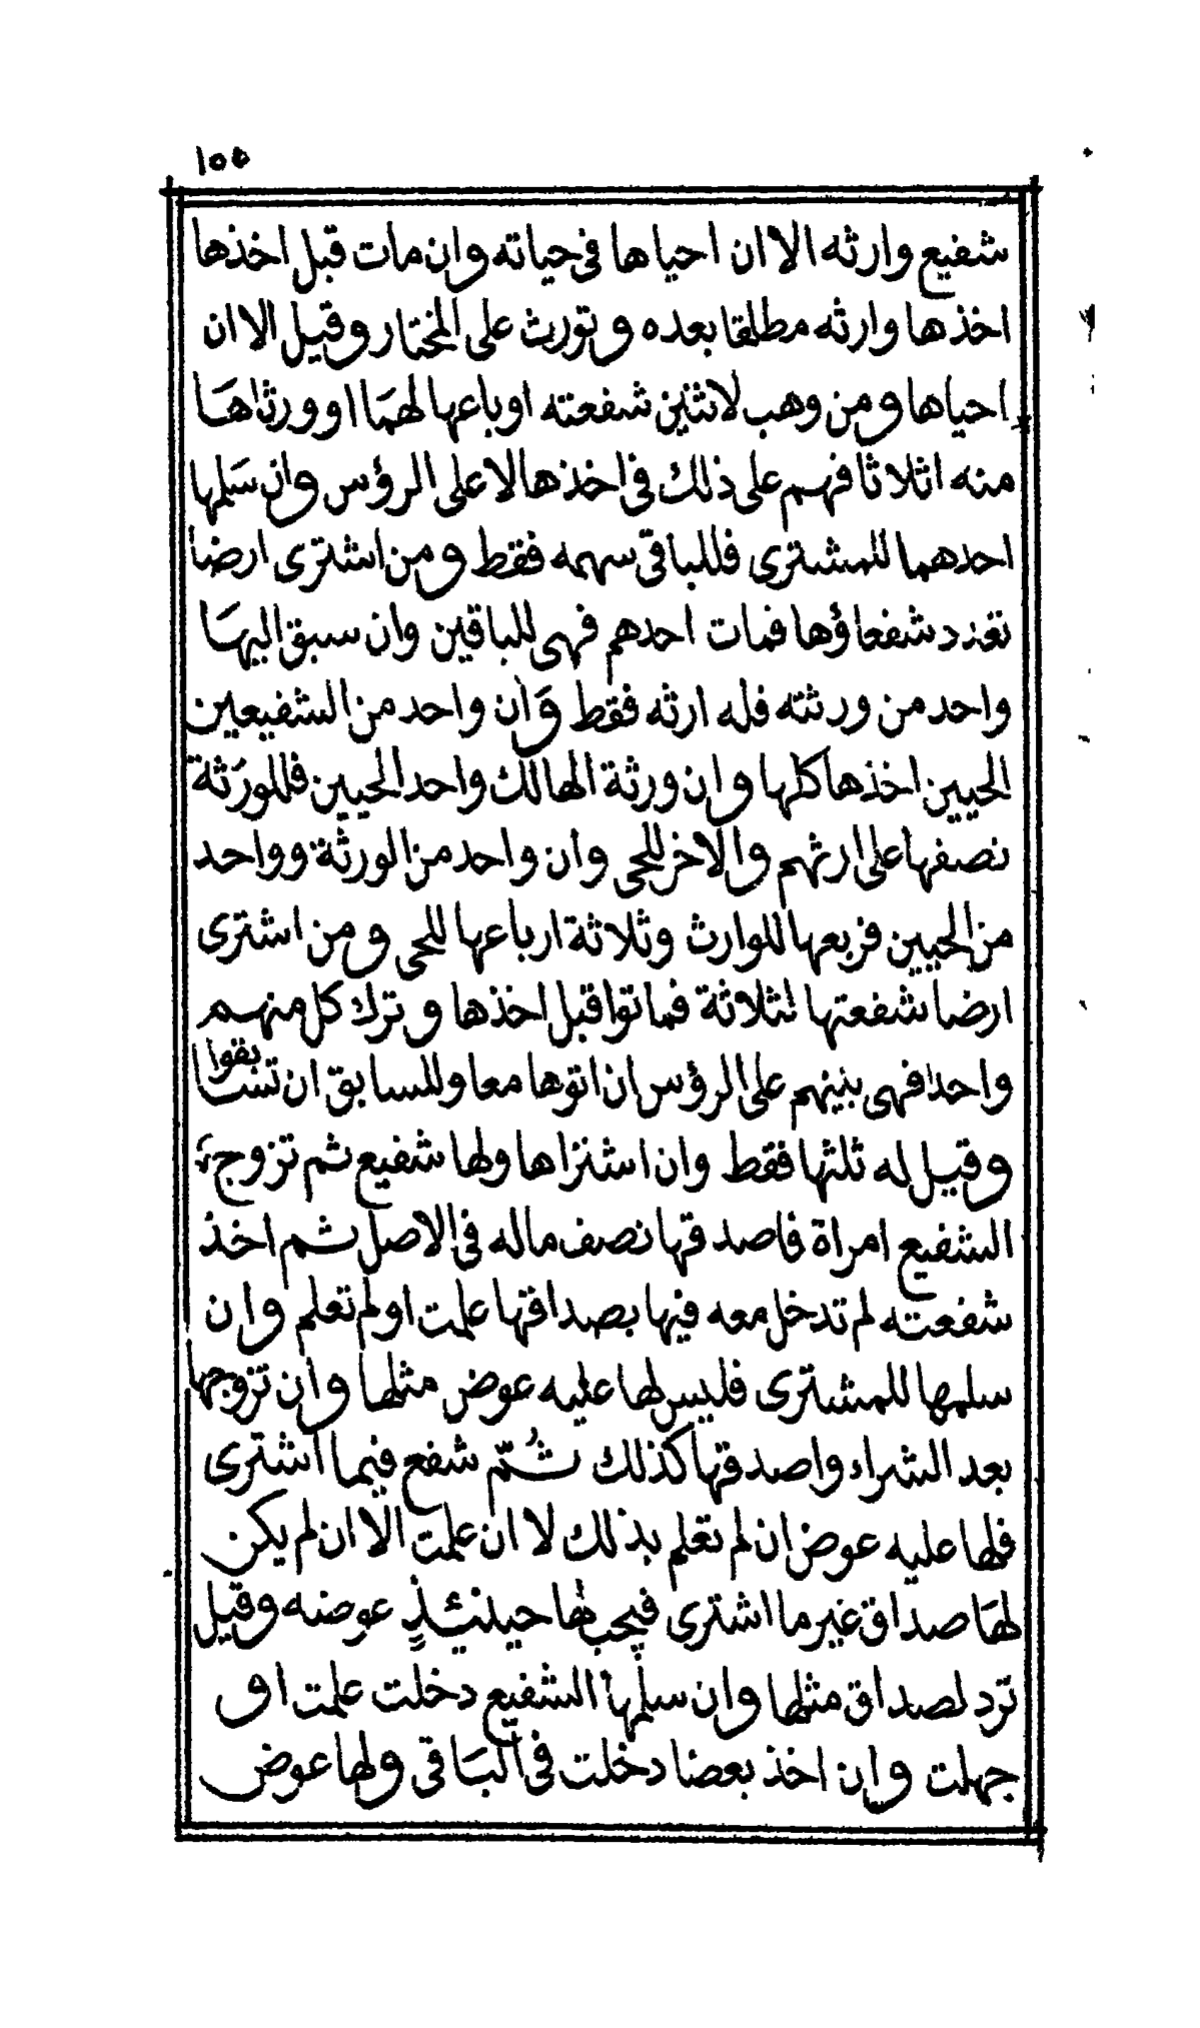 ١٥٥
شفيع وارثه الا ان احياها في حياته وان مات قبل اخذها
اخذها وارثه مطلقا بعده وتورث على المختار وقيل الا ان
احياها ومن وهب لاثنين شفعته او باعها لهما او ورثاها
منه اثلاثا فهم على ذلك في اخذها لا على الرؤس وان سلمها
احدهما للمشترى فللباقي سهمه فقط ومن اشترى ارضا
تعدد شفعاؤها فمات احدهم فهي للباقين وان سبق اليها
واحد من ورثته فله ارثه فقط وان واحد من الشفيعين
الحيين اخذها كلها وان ورثة الهالك واحد الحيين فللورثة
نصفها على ارثهم والاخر للحي وان واحد من الورثة وواحد
من الحيين فربعها للوارث وثلاثة ارباعها للحي ومن اشترى
ارضا شفعتها لثلاثة فماتوا قبل اخذها وترك كل منهم
واحدا فهي بينهم على الرؤس ان اتوها معا وللسابق ان تسابقوا
وقيل له ثلثها فقط وان اشتراها ولها شفيع ثم تزوج
الشفيع امراة فاصدقها نصف ماله في الاصل ثم اخذ
شفعته لم تدخل معه فيها بصداقها علمت او لم تعلم وان
سلمها للمشترى فليس لها عليه عوض مثلها وان تزوجها
بعد الشراء واصدقها كذلك ثُمّ شفع فيما اشترى
فلها عليه عوض ان لم تعلم بذلك لا ان علمت الا ان لم يكن
لها صداق غير ما اشترى فيجب لها حينئذٍ عوضه وقيل
ترد لصداق مثلها وان سلمها الشفيع دخلت علمت او
جهلت وان اخذ بعضا دخلت في الباقي ولها عوض